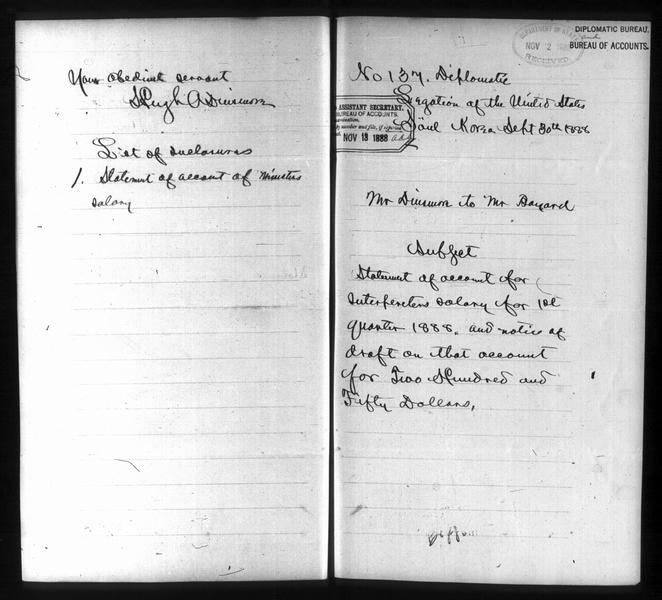 Your obedient servant
Hugh A Dinsmore
List of inclosures
1. Statement of account of Ministers
salary
DIPLOMATIC BUREAU,
and
BUREAU OF ACCOUNTS.
DEPARTMENT OF STATE
NOV 12
RECEIVED
No 137. Diplomatic
Legation of the United States
Söul Korea Sept 30th 1888
ASSISTANT SECRETARY.
BUREAU OF ACCOUNTS.
NOV 13 1888
Mr Dinsmore to Mr Bayard
Subject
Statement of account for
Interpreters salary for 1st
quarter 1888. and notice of
draft on that account
for Two Hundred and
Fifty Dollars,